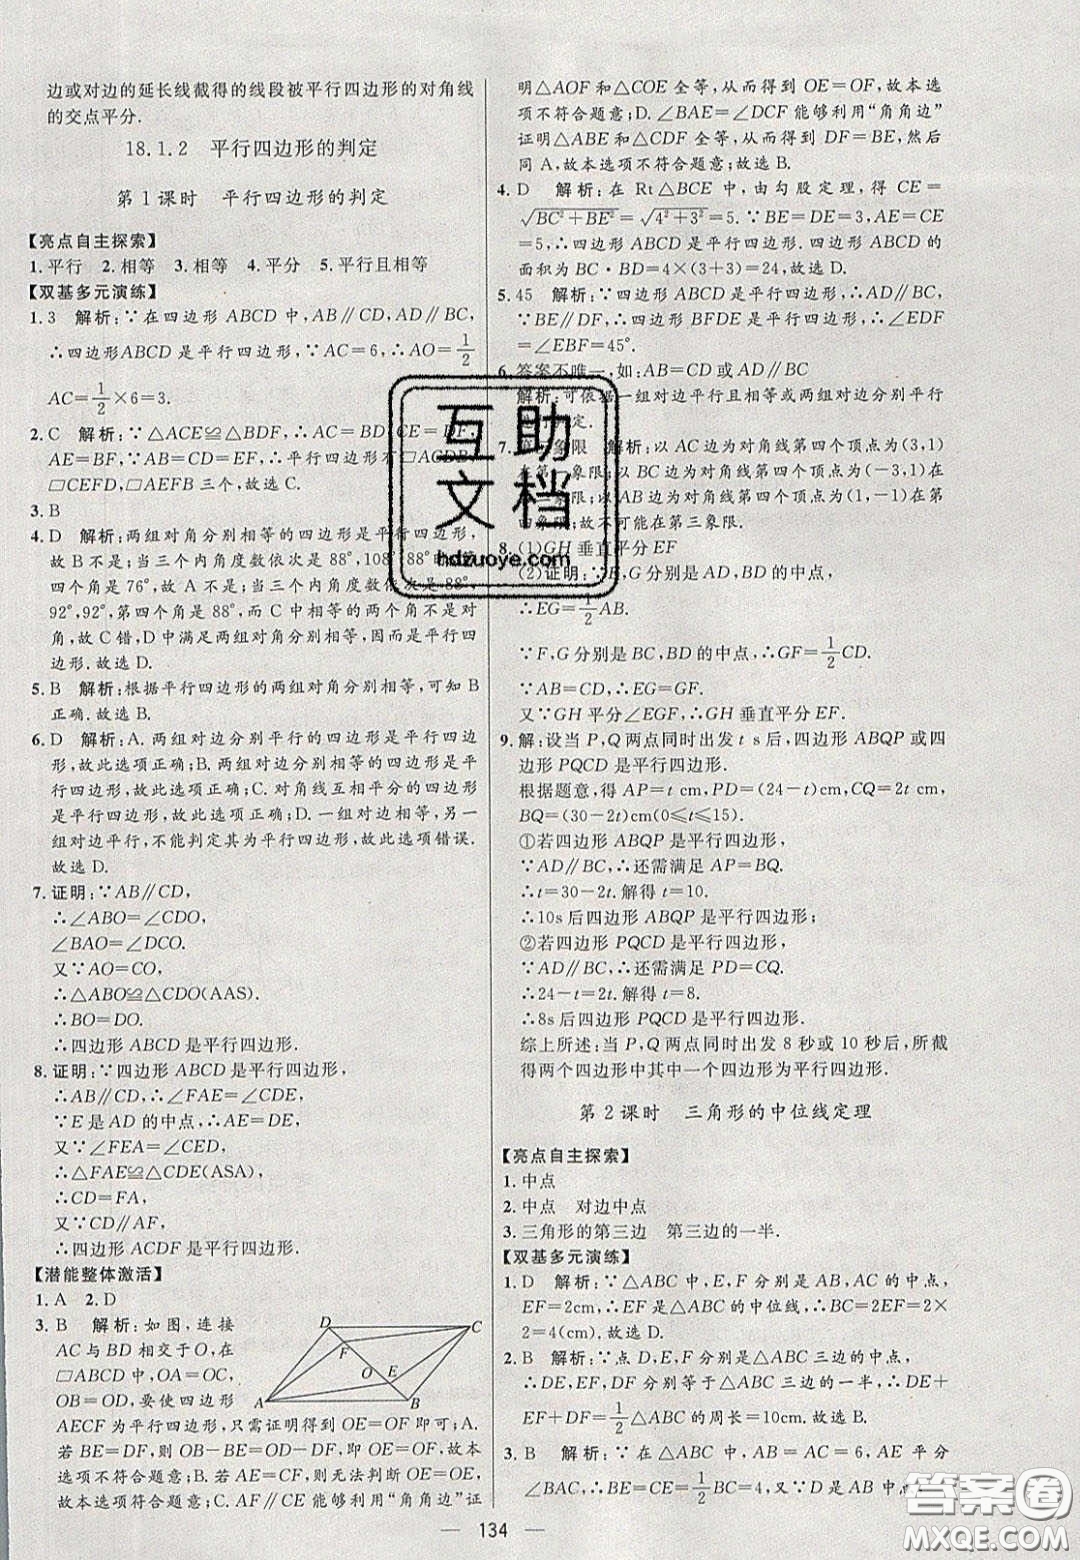 边或对边的延长线截得的线段被平行四边形的对角线
的交点平分.
18.1.2 平行四边形的判定
第1课时 平行四边形的判定
【亮点自主探索】
1.平行 2.相等 3.相等 4.平分 5.平行且相等
【双基多元演练】
1.3 解析:∵在四边形 ABCD 中,AB∥CD,AD∥BC,
∴四边形ABCD 是平行四边形,∵AC=6,∴AO=1/2
AC=1/2×6=3.
2.C 解析:∵△ACE≌△BDF,∴AC=BD,CE=DF,
AE=BF,∵AC∥BD,∴平行四边形有□ACDB,
□CEFD,□AEFB 三个,故选 C.
3.B
4.D 解析:两组对角分别相等的四边形是平行四边形,
故 B 不是;当三个内角度数依次是 88°,108°,88°时,第
四个角是 76°,故 A 不是;当三个内角度数依次是 88°,
92°,92°,第四个角是 88°,而 C 中相等的两个角不是对
角,故 C 错,D 中满足两组对角分别相等,因而是平行四
边形.故选 D.
5.B 解析:根据平行四边形的两组对角分别相等,可知 B
正确.故选 B.
6.D 解析:A. 两组对边分别平行的四边形是平行四边
形,故此选项正确;B. 两组对边分别相等的四边形是平
行四边形,故此选项正确;C. 对角线互相平分的四边形
是平行四边形,故此选项正确;D. 一组对边相等,另一
组对边平行,不能判定其为平行四边形,故此选项错误.
故选 D.
7.证明:∵AB∥CD,
∴∠ABO=∠CDO,
∠BAO=∠DCO.
又∵AO=CO,
∴△ABO≌△CDO(AAS).
∴BO=DO.
∴四边形 ABCD 是平行四边形.
8.证明:∵四边形 ABCD 是平行四边形,
∴AB∥CD,∴∠FAE=∠CDE,
∵E 是 AD 的中点,∴AE=DE,
又∵∠FEA=∠CED,
∴△FAE≌△CDE(ASA),
∴CD=FA,
又∵CD∥AF,
∴四边形 ACDF 是平行四边形.
【潜能整体激活】
1.A 2.D
3.B 解析:如图,连接
AC 与 BD 相交于 O,在
□ABCD 中,OA=OC,
OB=OD,要使四边形
AECF 为平行四边形,只需证明得到 OE=OF 即可;A.
若 BE=DF,则 OB-BE=OD-DF,即 OE=OF,故本
选项不符合题意;B. 若 AE=CF,则无法判断 OE=OF,
故本选项符合题意;C. AF∥CE 能够利用“角角边”证
D
C
F
O
E
A
B
明△AOF 和△COE 全等,从而得到 OE=OF,故本选
项不符合题意;D. ∠BAE=∠DCF 能够利用“角角边”
证明△ABE 和△CDF 全等,从而得到 DF=BE,然后
同 A,故本选项不符合题意;故选 B.
4.D 解析:在 Rt△BCE 中,由勾股定理,得 CE=
√(BC²+BE²)=√(4²+3²)=5. ∵BE=DE=3,AE=CE
=5,∴四边形 ABCD 是平行四边形.四边形 ABCD 的
面积为 BC·BD=4×(3+3)=24,故选 D.
5.45 解析:∵四边形 ABCD 是平行四边形,∴AD∥BC,
∵BE∥DF,∴四边形 BFDE 是平行四边形,∴∠EDF
=∠EBF=45°.
6.答案不唯一,如:AB=CD或AD∥BC
解析:可依据一组对边平行且相等或两组对边分别平行
定.
7.第三象限 解析:以 AC 边为对角线第四个顶点为(3,1)
在第一象限;以 BC 边为对角线第四个顶点为(-3,1)在
象限;以 AB 边为对角线第四个顶点为(1,-1)在第四
象限;故不可能在第三象限.
8.(1)GH 垂直平分 EF
(2)证明:∵E,G分别是 AD,BD 的中点,
∴EG=1/2AB.
∵F,G 分别是 BC,BD 的中点,∴GF=1/2CD.
∵AB=CD,∴EG=GF.
又∵GH 平分∠EGF,∴GH 垂直平分 EF.
9.解:设当 P,Q 两点同时出发 t s后,四边形 ABQP 或四
边形 PQCD 是平行四边形.
根据题意,得 AP=t cm,PD=(24-t)cm,CQ=2t cm,
BQ=(30-2t)cm(0≤t≤15).
①若四边形 ABQP 是平行四边形,
∵AD∥BC,∴还需满足 AP=BQ.
∴t=30-2t. 解得 t=10.
∴10s后四边形 ABQP 是平行四边形;
②若四边形 PQCD 是平行四边形,
∵AD∥BC,∴还需满足 PD=CQ.
∴24-t=2t. 解得 t=8.
∴8s后四边形 PQCD 是平行四边形.
综上所述:当 P,Q 两点同时出发 8 秒或 10 秒后,所截
得两个四边形中其中一个四边形为平行四边形.
第2课时 三角形的中位线定理
【亮点自主探索】
1.中点
2.中点 对边中点
3.三角形的第三边 第三边的一半.
【双基多元演练】
1.D 解析:∵△ABC 中,E,F 分别是 AB,AC 的中点,
EF=2cm,∴EF 是△ABC 的中位线,∴BC=2EF=2×
2=4(cm).故选 D.
2.B 解析:∵点 D,E,F 分别是△ABC 三边的中点,
∴DE,EF,DF 分别等于△ABC 三边的一半,∴DE+
EF+DF=1/2△ABC 的周长=10cm.故选 B.
3.B 解析:∵在△ABC 中,AB=AC=6,AE 平分
∠BAC,∴BE=CE=1/2BC=4,又∵D 是 AB 中点,
134
互助
文档
hdzuoye.com
答案圈
MXQE.COM